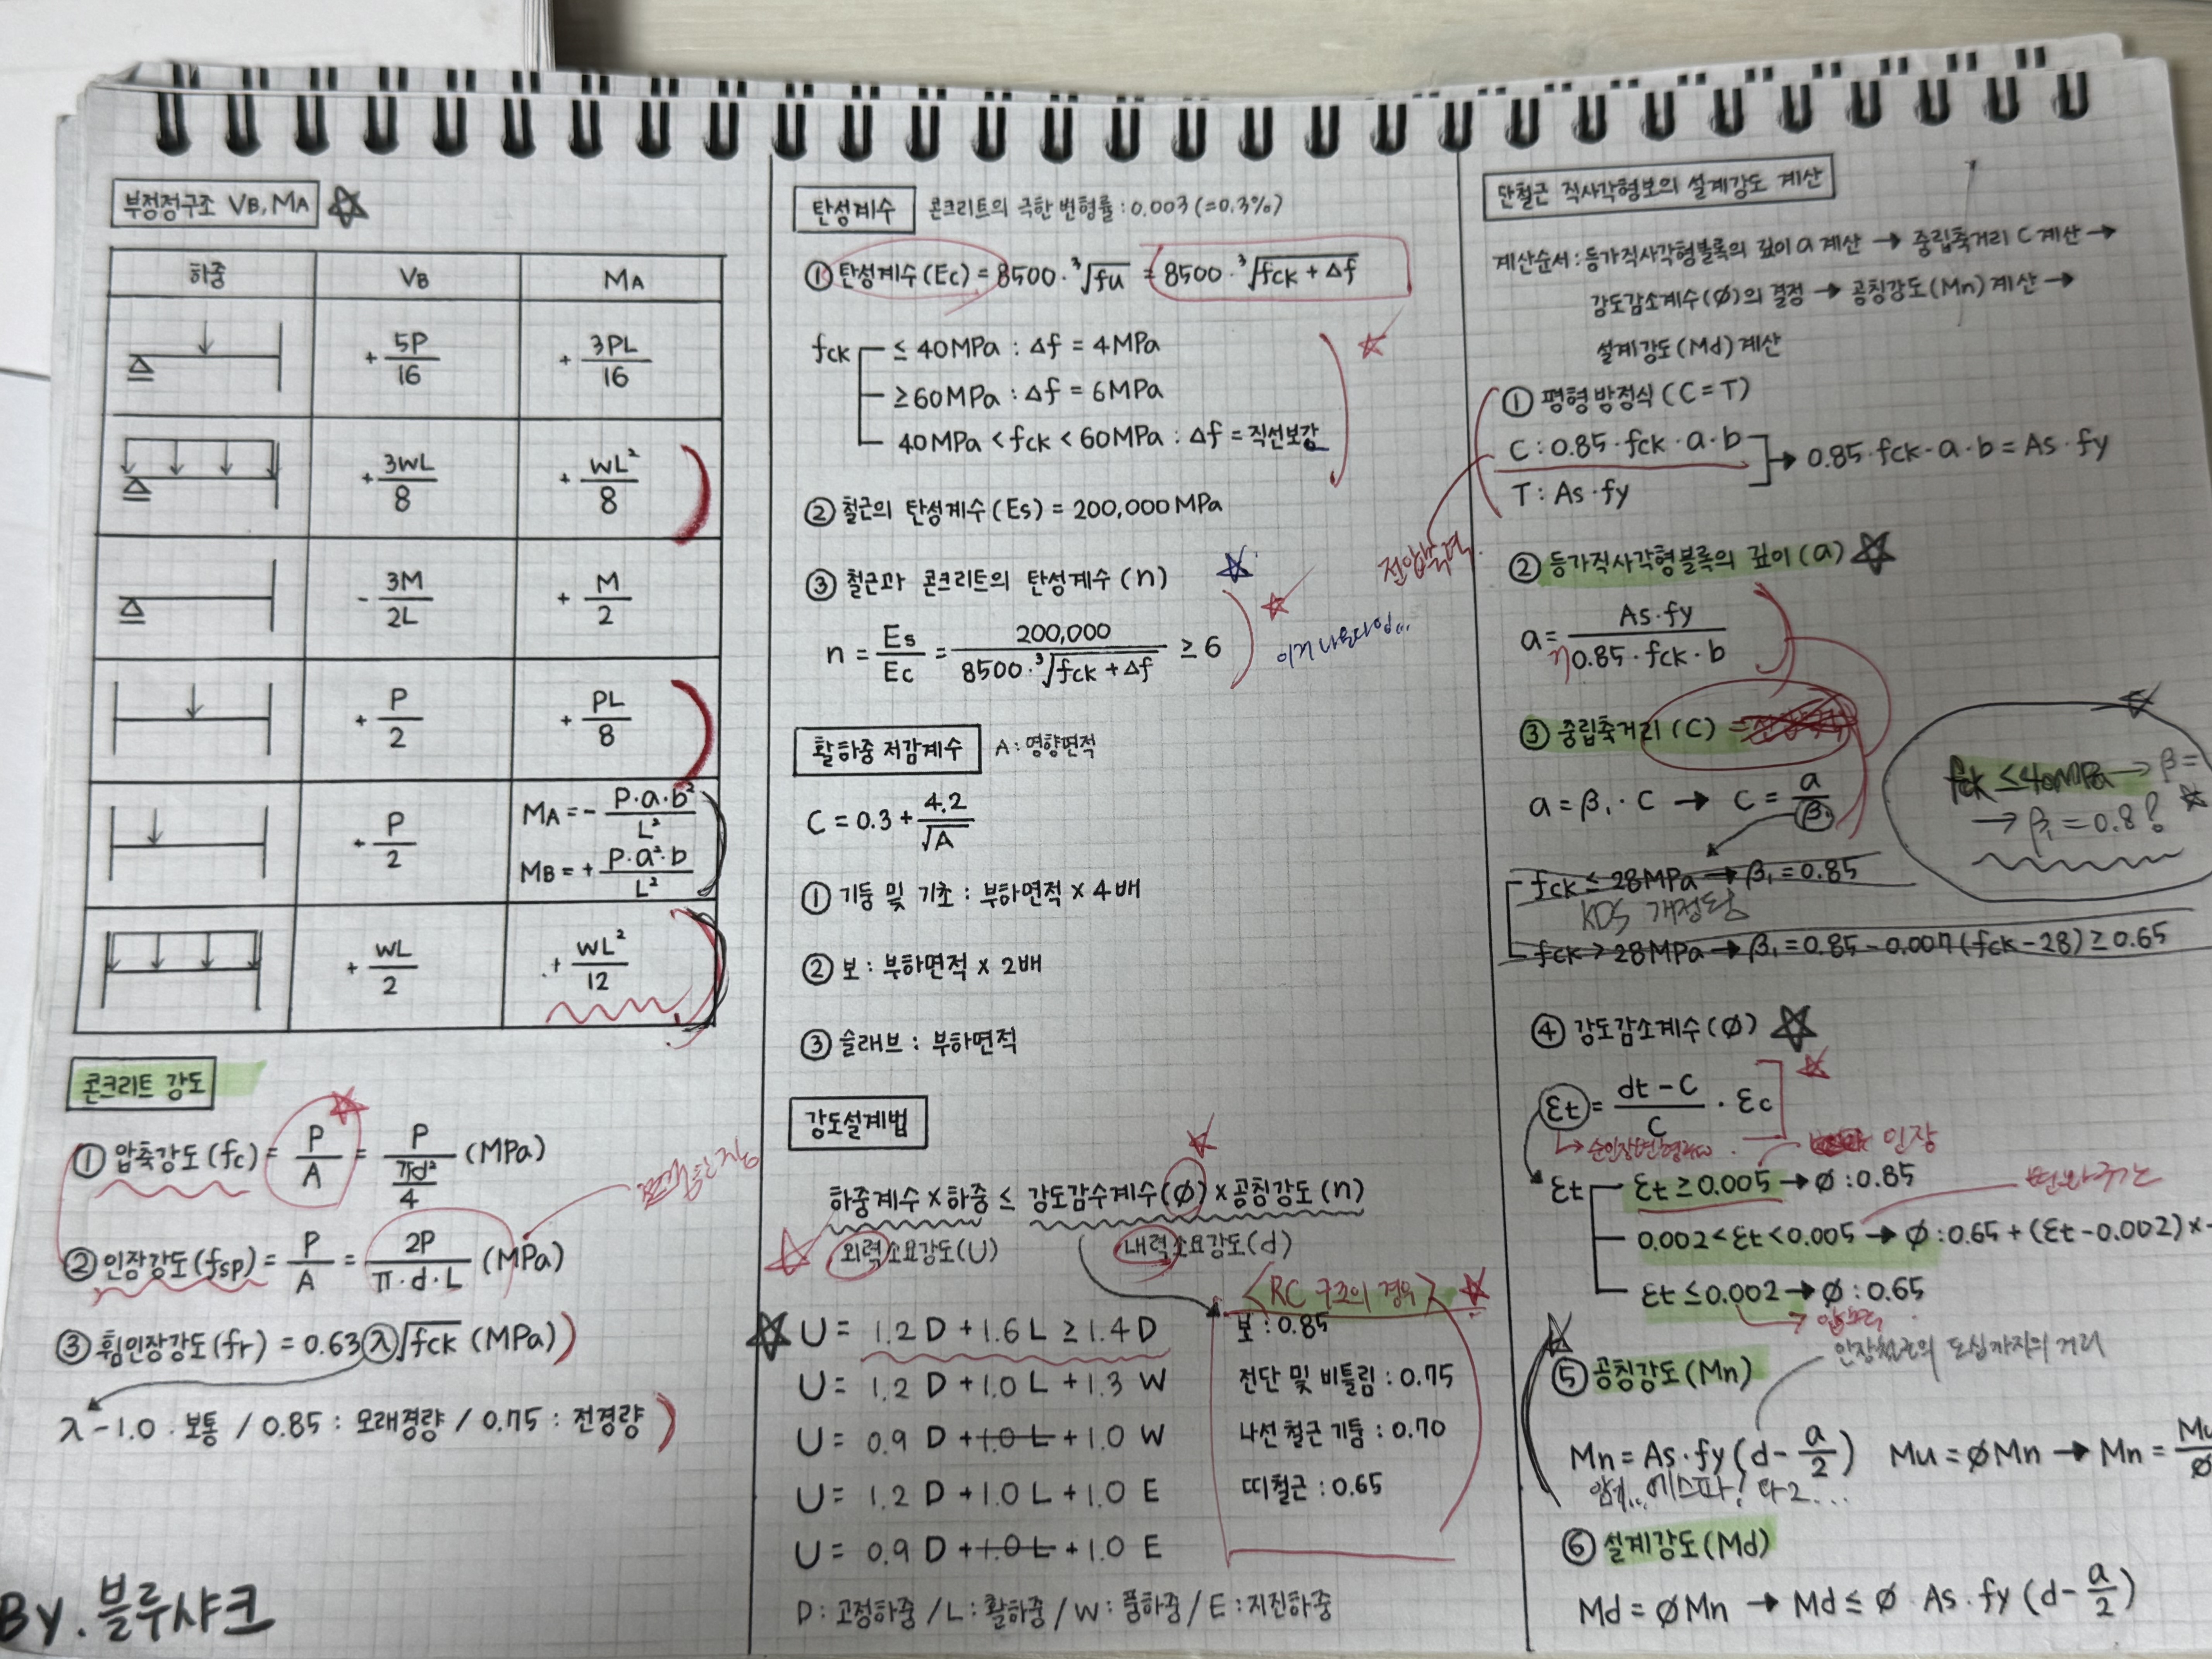 부정정구조 VB, MA
하중 VB MA
+ 5P/16 + 3PL/16
+ 3WL/8 + WL²/8
- 3M/2L + M/2
+ P/2 + PL/8
+ P/2 MA = - P·a·b²/L²
MB = + P·a²·b/L²
+ WL/2 + WL²/12
콘크리트 강도
① 압축강도(fc) = P/A = P/(πd²/4) (MPa)
② 인장강도(fsp) = P/A = 2P/(π·d·L) (MPa)
③ 휨인장강도(fr) = 0.63λ√fck (MPa)
λ - 1.0 · 보통 / 0.85 : 모래경량 / 0.75 : 전경량
By. 블루샤크
탄성계수 콘크리트의 극한 변형률 : 0.003 (=0.3%)
① 탄성계수(Ec) = 8500·³√fu = 8500·³√(fck + Δf)
fck ≤ 40MPa : Δf = 4MPa
≥ 60MPa : Δf = 6MPa
40MPa < fck < 60MPa : Δf = 직선보간
② 철근의 탄성계수(Es) = 200,000MPa
③ 철근과 콘크리트의 탄성계수(n)
n = Es/Ec = 200,000/(8500·³√(fck + Δf)) ≥ 6
활하중 저감계수 A : 영향면적
C = 0.3 + 4.2/√A
① 기둥 및 기초 : 부하면적 × 4배
② 보 : 부하면적 × 2배
③ 슬래브 : 부하면적
강도설계법
하중계수 × 하중 ≤ 강도감수계수(ø) × 공칭강도(n)
외력소요강도(U) 내력소요강도(d)
<RC 구조의 경우>
보 : 0.85
전단 및 비틀림 : 0.75
나선 철근 기둥 : 0.70
띠철근 : 0.65
U = 1.2 D + 1.6 L ≥ 1.4 D
U = 1.2 D + 1.0 L + 1.3 W
U = 0.9 D + 1.0 L + 1.0 W
U = 1.2 D + 1.0 L + 1.0 E
U = 0.9 D + 1.0 L + 1.0 E
D : 고정하중 / L : 활하중 / W : 풍하중 / E : 지진하중
단철근 직사각형보의 설계강도 계산
계산순서 : 등가직사각형블록의 깊이 a 계산 → 중립축거리 C 계산 →
강도감소계수(ø)의 결정 → 공칭강도(Mn) 계산 →
설계강도(Md) 계산
① 평형방정식 (C = T)
C : 0.85·fck·a·b
T : As·fy
→ 0.85·fck·a·b = As·fy
전압축력
② 등가직사각형블록의 깊이(a)
a = As·fy/(η0.85·fck·b)
③ 중립축거리(C) =
a = β₁·C → C = a/β₁
fck ≤ 40MPa → β =
→ β₁ = 0.8!
fck ≤ 28MPa → β₁ = 0.85
KDS 개정됨
fck > 28MPa → β₁ = 0.85 - 0.007(fck - 28) ≥ 0.65
④ 강도감소계수(ø)
εt = (dt - C)/C · εc
인장
εt εt ≥ 0.005 → ø : 0.85
변화구간
0.002 < εt < 0.005 → ø : 0.65 + (εt - 0.002) ×
εt ≤ 0.002 → ø : 0.65
인장철근의 도심까지의 거리
⑤ 공칭강도(Mn)
Mn = As·fy(d - a/2) Mu = øMn → Mn = Mu/ø
⑥ 설계강도(Md)
Md = øMn → Md ≤ ø As·fy(d - a/2)